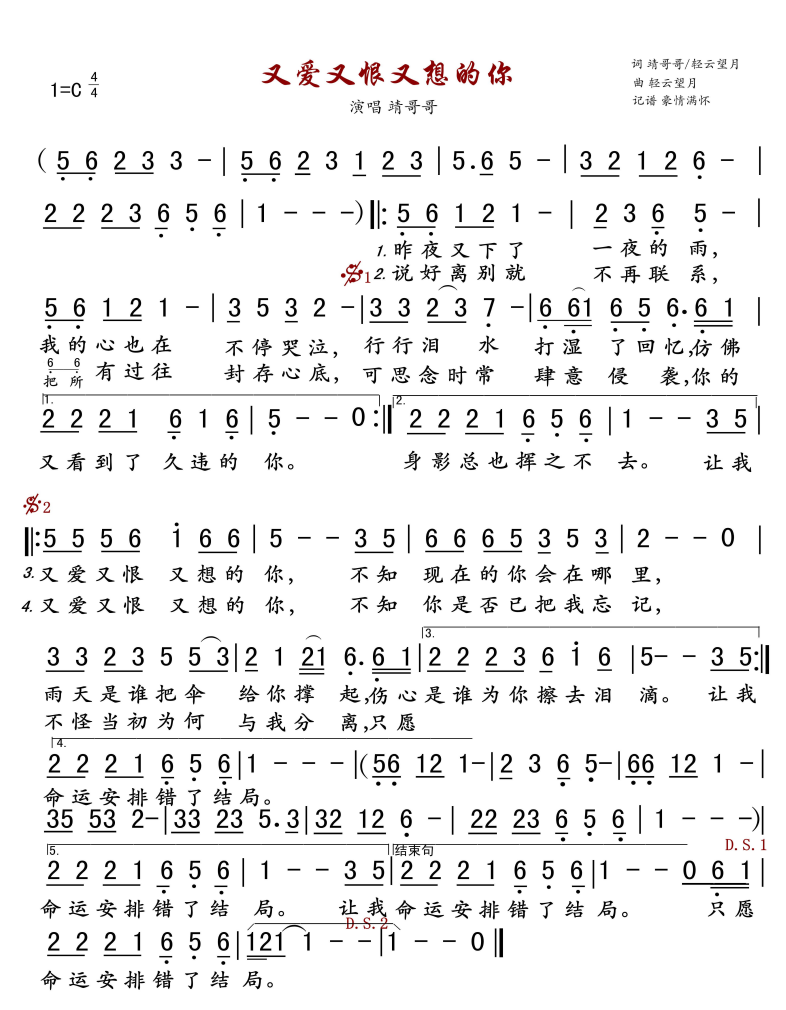 又爱又恨又想的你
1=C 4/4
演唱 靖哥哥
词 靖哥哥/轻云望月
曲 轻云望月
记谱 豪情满怀
( 5 6 2 3 3 - | 5 6 2 3 1 2 3 | 5. 6 5 - | 3 2 1 2 6 - |
2 2 2 3 6 5 6 | 1 - - - ) ‖: 5 6 1 2 1 - | 2 3 6 5 - |
1. 昨夜又下了 一夜的 雨,
𝄋1 2. 说好离别就 不再联 系,
5 6 1 2 1 - | 3 5 3 2 - | 3 3 2 3 7 - | 6 61 6 5 6. 6 1 |
我的心也在 不停哭泣, 行行泪 水 打湿 了回忆,仿佛
6 6
把所 有过往 封存心底, 可思念时常 肆意 侵 袭,你的
1. 2.
2 2 2 1 6 1 6 | 5 - - 0 :‖ 2 2 2 1 6 5 6 | 1 - - 3 5 |
又看到了 久违的 你。 身影总也挥之不 去。 让我
𝄋2
‖: 5 5 5 6 1 6 6 | 5 - - 3 5 | 6 6 6 5 3 5 3 | 2 - - 0 |
3. 又爱又恨 又想的 你, 不知 现在的你会在哪 里,
4. 又爱又恨 又想的 你, 不知 你是否已把我忘 记,
3.
3 3 2 3 5 5 3 | 2 1 21 6. 6 1 | 2 2 2 3 6 1 6 | 5 - - 3 5 :‖
雨天是谁把伞 给你撑 起,伤心是谁为你擦去泪 滴。 让我
不怪当初为何 与我分 离,只愿
4.
2 2 2 1 6 5 6 | 1 - - - | ( 56 12 1 - | 2 3 6 5 - | 66 12 1 - |
命运安排错了结局。
35 53 2 - | 33 23 5. 3 | 32 12 6 - | 22 23 6 5 6 | 1 - - - ) |
D.S.1
5. 结束句
2 2 2 1 6 5 6 | 1 - - 3 5 | 2 2 2 1 6 5 6 | 1 - - 0 6 1 |
命运安排错了结 局。 让我 命运安排错了结 局。 只愿
D.S.2
2 2 2 1 6 5 6 | 121 1 - - | 1 - - 0 ‖
命运安排错了结 局。